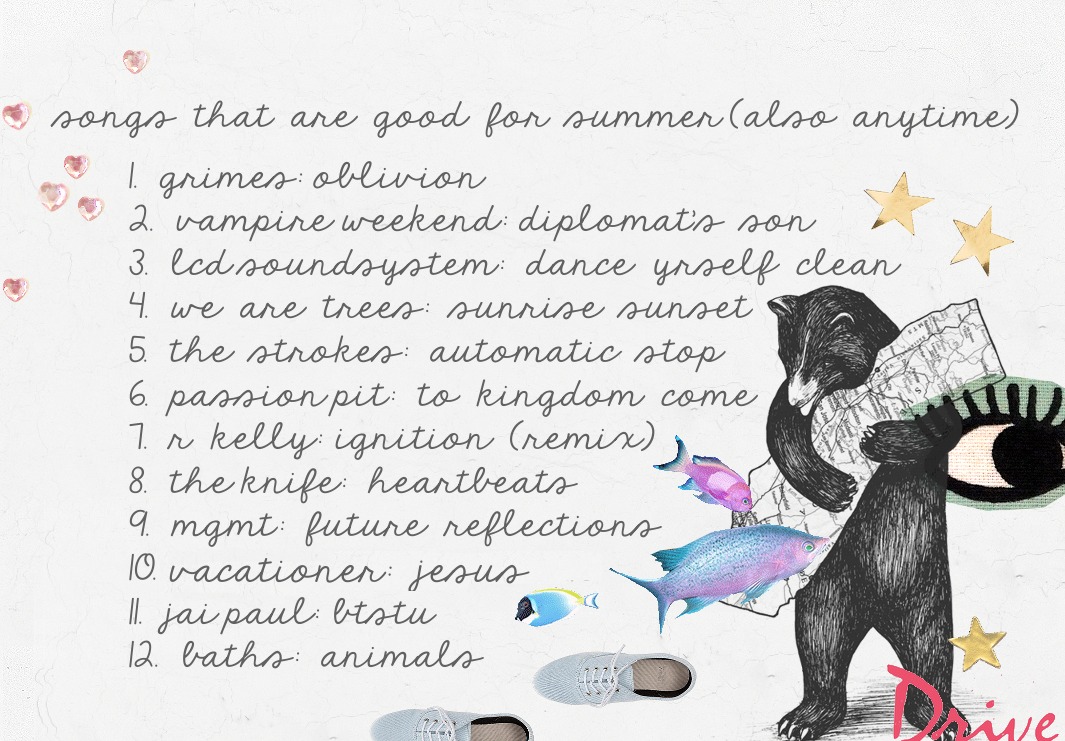 songs that are good for summer(also anytime)
1. grimes: oblivion
2. vampire weekend: diplomat's son
3. lcd soundsystem: dance yrself clean
4. we are trees: sunrise sunset
5. the strokes: automatic stop
6. passion pit: to kingdom come
7. r kelly: ignition (remix)
8. the knife: heartbeats
9. mgmt: future reflections
10. vacationer: jesus
11. jai paul: btstu
12. baths: animals
Drive